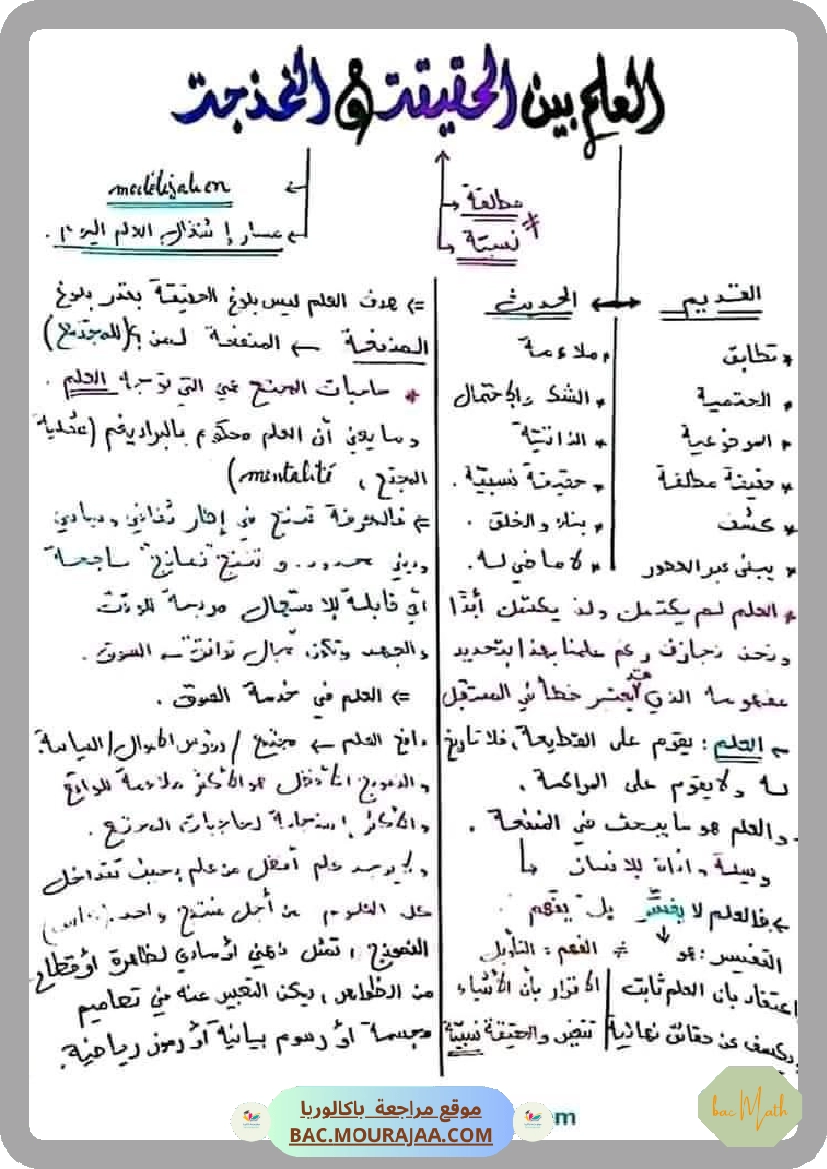 العلم بين الحقيقة و النمذجة
مطلقة
نسبية
modélisation
مسار إشتغال العلم اليوم .
القديم
الحديث
* تطابق
* الحتمية
* الموضوعية
* حقيقة مطلقة
* كشف
* يبنى عبر العصور
* ملاءمة
* الشك والاحتمال
* الذاتية
* حقيقة نسبية .
* بناء والخلق .
* لا ماضي له .
* العلم لم يكتمل ولن يكتمل أبدا
ونحن نجازف رغم علمنا بهذا بتحديد
مفهومه الذي قد يعتبر خطأ في المستقبل
← العلم : يقوم على القطيعة ، فلا تاريخ
له ولا يقوم على المراكمة .
والعلم هو ما يبحث في المنفعة .
وسيلة وأداة للإنسان
← فالعلم لا يفسّر بل يتفهم .
التفسير : هو
اعتقاد بأن العلم ثابت
ويكشف عن حقائق نهائية
≠ الفهم : التأويل
الاقرار بأن الأشياء
تتغير والحقيقة نسبيّة
=> هدف العلم ليس بلوغ الحقيقة بقدر بلوغ
المنفعة ← المنفعة لمن ؟ (للمجتمع)
* حاجيات المجتمع هي التي توجه العلم .
وما يعني أن العلم محكوم بالبراديغم (عقلية
المجتمع ، mentalité)
=> فالمعرفة تصنع في إطار ثقافي ومبادئ
وديني محدود .. و تنتج "نماذج" ناجعة
أي قابلة للاستعمال مربحة للوقت
والجهد وتكون مجال توافق السوق .
=> العلم في خدمة السوق .
واقع العلم ← مجتمع / رؤوس الأموال / السياسة .
والنموذج الأفضل هو الأكثر ملاءمة للواقع
والأكثر استجابة لحاجيات المجتمع .
ولا يوجد علم أفضل من علم بحيث تتداخل
كل العلوم من أجل منتج واحد .
النموذج ، تمثل ذهني أو مادي لظاهرة أو قطاع
من الظواهر ، يمكن التعبير عنه في تصاميم
مجسمة أو رسوم بيانية أو رموز رياضية .
موقع مراجعة باكالوريا
BAC.MOURAJAA.COM
bac Math